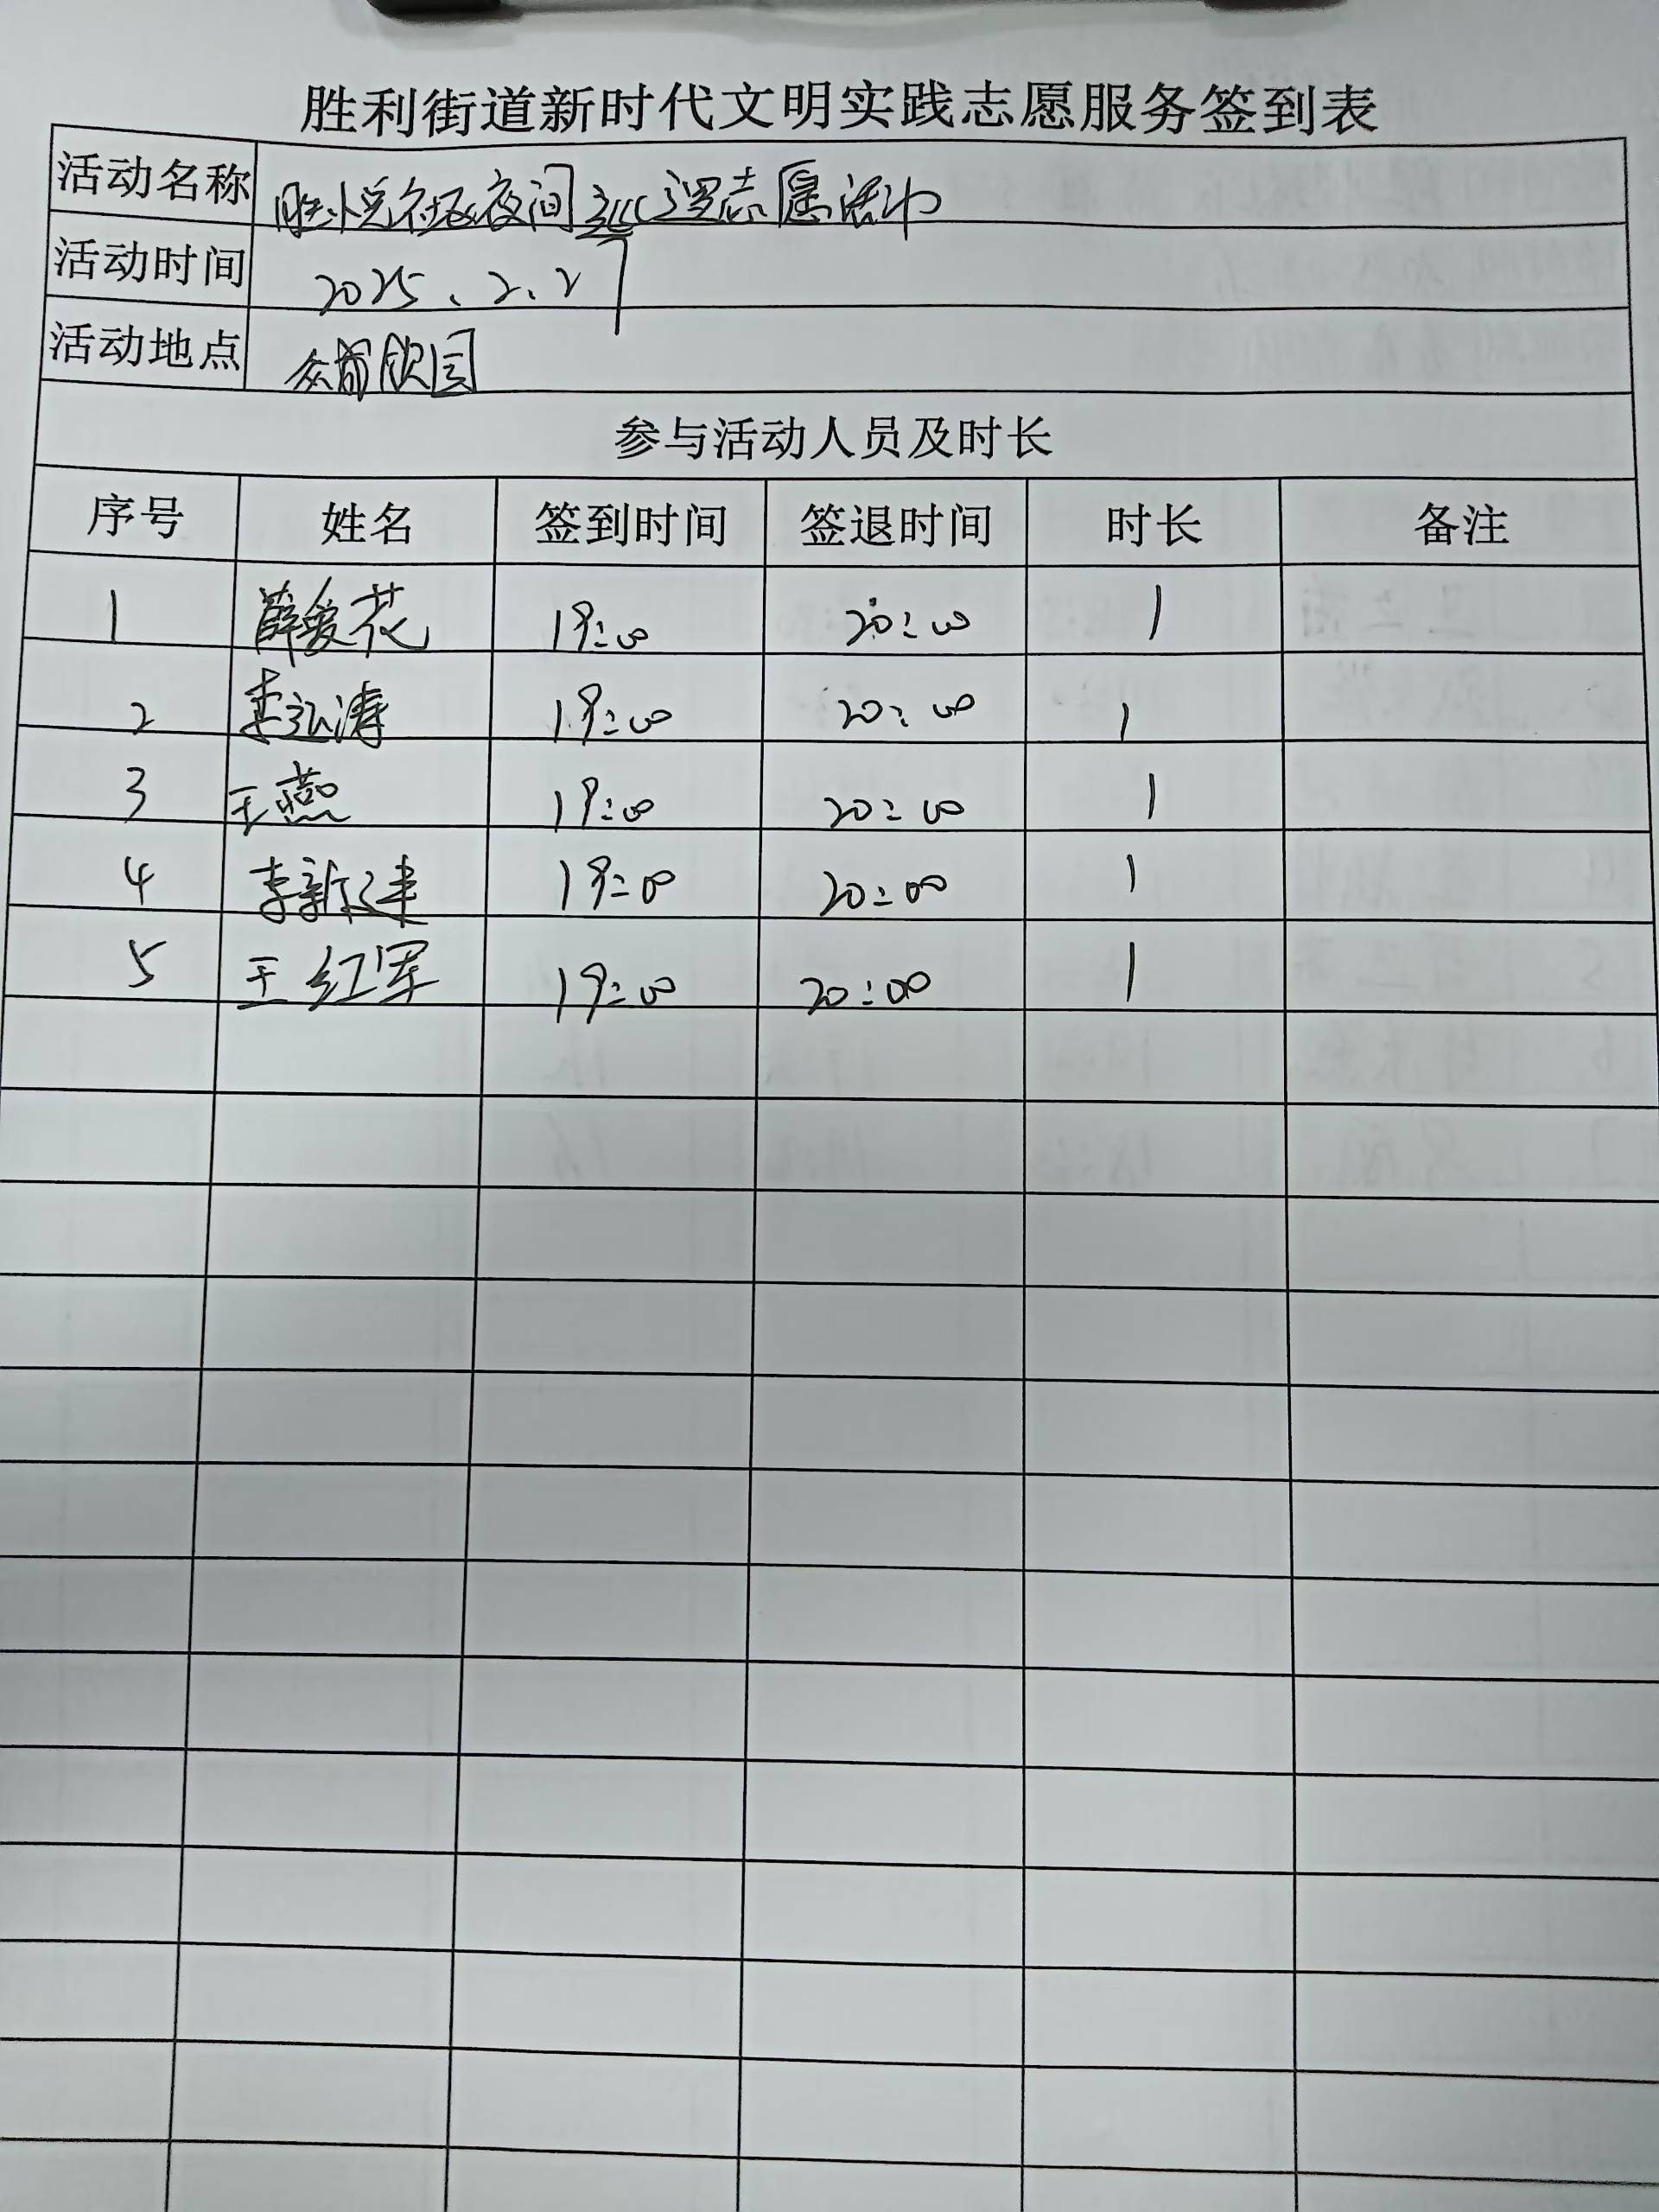 胜利街道新时代文明实践志愿服务签到表
活动名称 胜悦社区夜间巡逻志愿活动
活动时间 2025、2、27
活动地点
参与活动人员及时长
序号 姓名 签到时间 签退时间 时长 备注
1 薛爱花 19:00 20:00 1
2 19:00 20:00 1
3 王燕 19:00 20:00 1
4 李新建 19:00 20:00 1
5 王红军 19:00 20:00 1